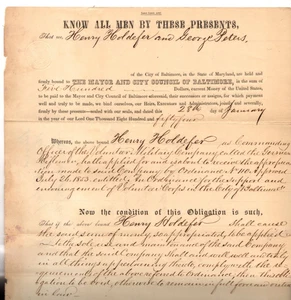 KNOW ALL MEN BY THESE PRESENTS,
That we Henry Holdefer and George Peters
of the City of Baltimore, in the State of Maryland, are held and
firmly bound to THE MAYOR AND CITY COUNCIL OF BALTIMORE, in
Five Hundred Dollars, current Money of the United States,
to be paid to the Mayor and City Council of Baltimore aforesaid, their successors or assigns, for which payment
well and truly to be made, we bind ourselves, our Heirs, Executors and Administrators, jointly and severally,
firmly by these presents—sealed with our seals, and dated this 28th day of January
in the year of our Lord One Thousand Eight Hundred and fifty four
Whereas, the above bound Henry Holdefer as Commanding
Officer of the Volunteer Military Company called the German
has applied for and is about to receive the appropria
tion made to said Company by Ordinance No approved
July 26 1853 entitled an Ordinance for the support and
encouragement of Volunteer Corps in the City of Baltimore
Now the condition of this Obligation is such,
That if the said bound Henry Holdefer Shall cause
the said sum of money so appropriated to be applied
to the sole use and maintenance of the said Company
and that the said Company shall and will well and truly
in all things comply with the re
quirements of the above referred to Ordinance, then this Obli
gation to be void, otherwise to remain in full force and virtue
in law